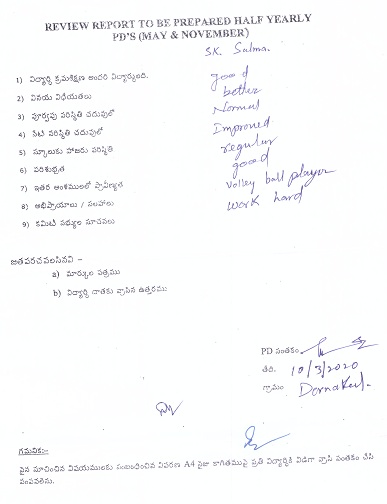 REVIEW REPORT TO BE PREPARED HALF YEARLY
PD'S (MAY & NOVEMBER)
SK. Salma.
1) విద్యార్థి క్రమశిక్షణ అందరి విద్యార్థులది. good
2) వినయ విధేయతలు better
3) పూర్వపు పరిస్థితి చదువులో Normal
4) నేటి పరిస్థితి చదువులో Improved
5) స్కూలుకు హాజరు పరిస్థితి regular
6) పరిశుభ్రత good
7) ఇతర అంశములలో ప్రావీణ్యత volley ball player
8) అభిప్రాయాలు / సలహాలు work hard
9) కమిటి సభ్యుల సూచనలు
జతపరచవలసినవి –
a) మార్కుల పత్రము
b) విద్యార్థి దాతకు వ్రాసిన ఉత్తరము
PD సంతకం
తేది. 10/3/2020
గ్రామం Dornakal.
గమనిక:-
పైన సూచించిన విషయములకు సంబంధించిన వివరణ A4 సైజు కాగితముపై ప్రతి విద్యార్థికి విడిగా వ్రాసి సంతకం చేసి
పంపవలెను.